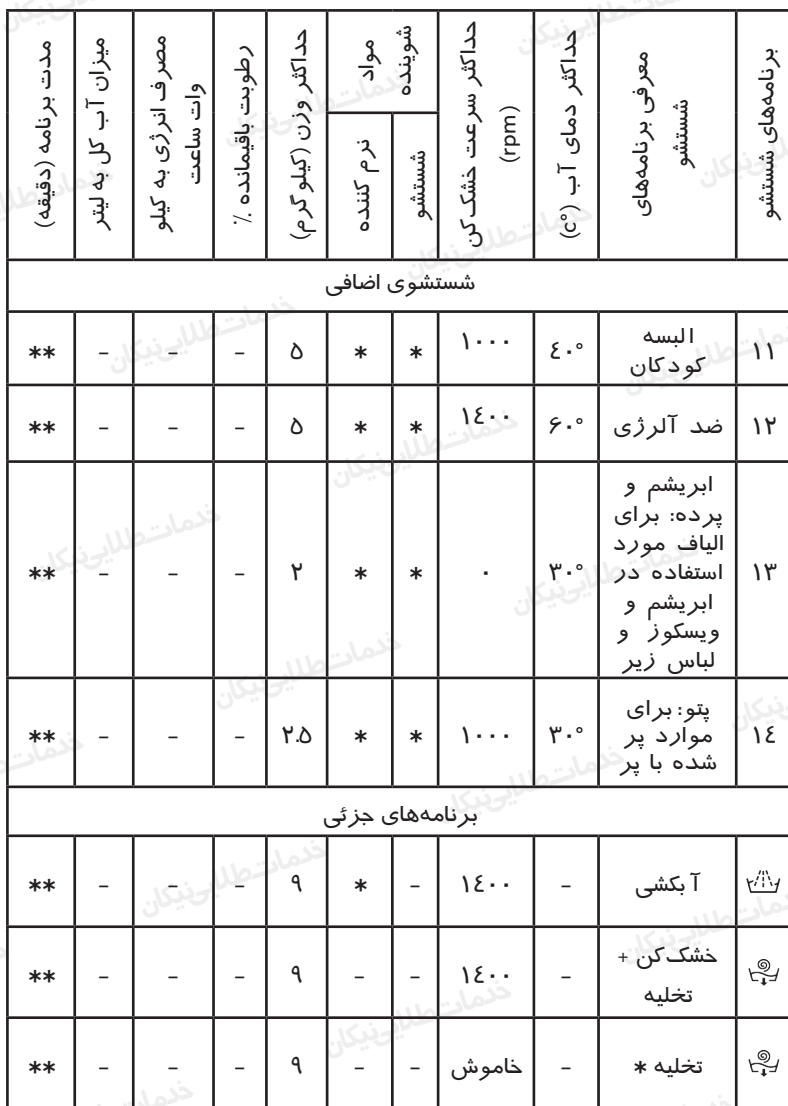 برنامه‌های شستشو
معرفی برنامه‌های
شستشو
حداکثر دمای آب (°c)
حداکثر سرعت خشک‌کن
(rpm)
مواد
شوینده
شستشو
نرم کننده
حداکثر وزن (کیلوگرم)
رطوبت باقیمانده ٪
مصرف انرژی به کیلو
وات ساعت
میزان آب کل به لیتر
مدت برنامه (دقیقه)
شستشوی اضافی
۱۱ البسه کودکان ٤۰° ۱۰۰۰ * * ۵ – – – **
۱۲ ضد آلرژی ۶۰° ۱٤۰۰ * * ۵ – – – **
۱۳ ابریشم و
پرده: برای
الیاف مورد
استفاده در
ابریشم و
ویسکوز و
لباس زیر
۳۰° ۰ * * ۲ – – – **
۱٤ پتو: برای
موارد پر
شده با پر
۳۰° ۱۰۰۰ * * ۲.۵ – – – **
برنامه‌های جزئی
آبکشی – ۱٤۰۰ – * ۹ – – – **
خشک‌کن +
تخلیه
– ۱٤۰۰ – – ۹ – – – **
تخلیه * – خاموش – – ۹ – – – **
خدمات طلایی نیکان